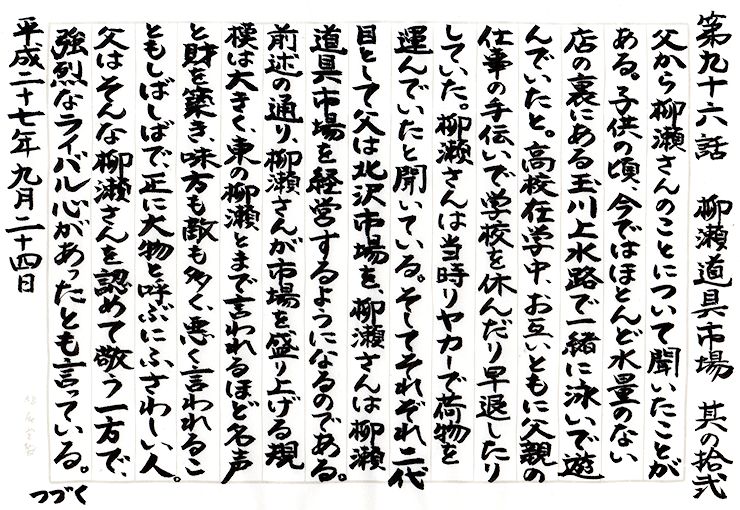 第九十六話　柳瀬道具市場　其の拾弐
父から柳瀬さんのことについて聞いたことが
ある。子供の頃、今ではほとんど水量のない
店の裏にある玉川上水路で一緒に泳いで遊
んでいたと。高校在学中、お互いともに父親の
仕事の手伝いで学校を休んだり早退したり
していた。柳瀬さんは当時リヤカーで荷物を
運んでいたと聞いている。そしてそれぞれ二代
目として父は北沢市場を、柳瀬さんは柳瀬
道具市場を経営するようになるのである。
前述の通り、柳瀬さんが市場を盛り上げる規
模は大きく、東の柳瀬とまで言われるほど名声
と財を築き、味方も敵も多く、悪く言われるこ
ともしばしばで、正に大物と呼ぶにふさわしい人。
父はそんな柳瀬さんを認めて敬う一方で、
強烈なライバル心があったとも言っている。
平成二十七年九月二十四日
つづく